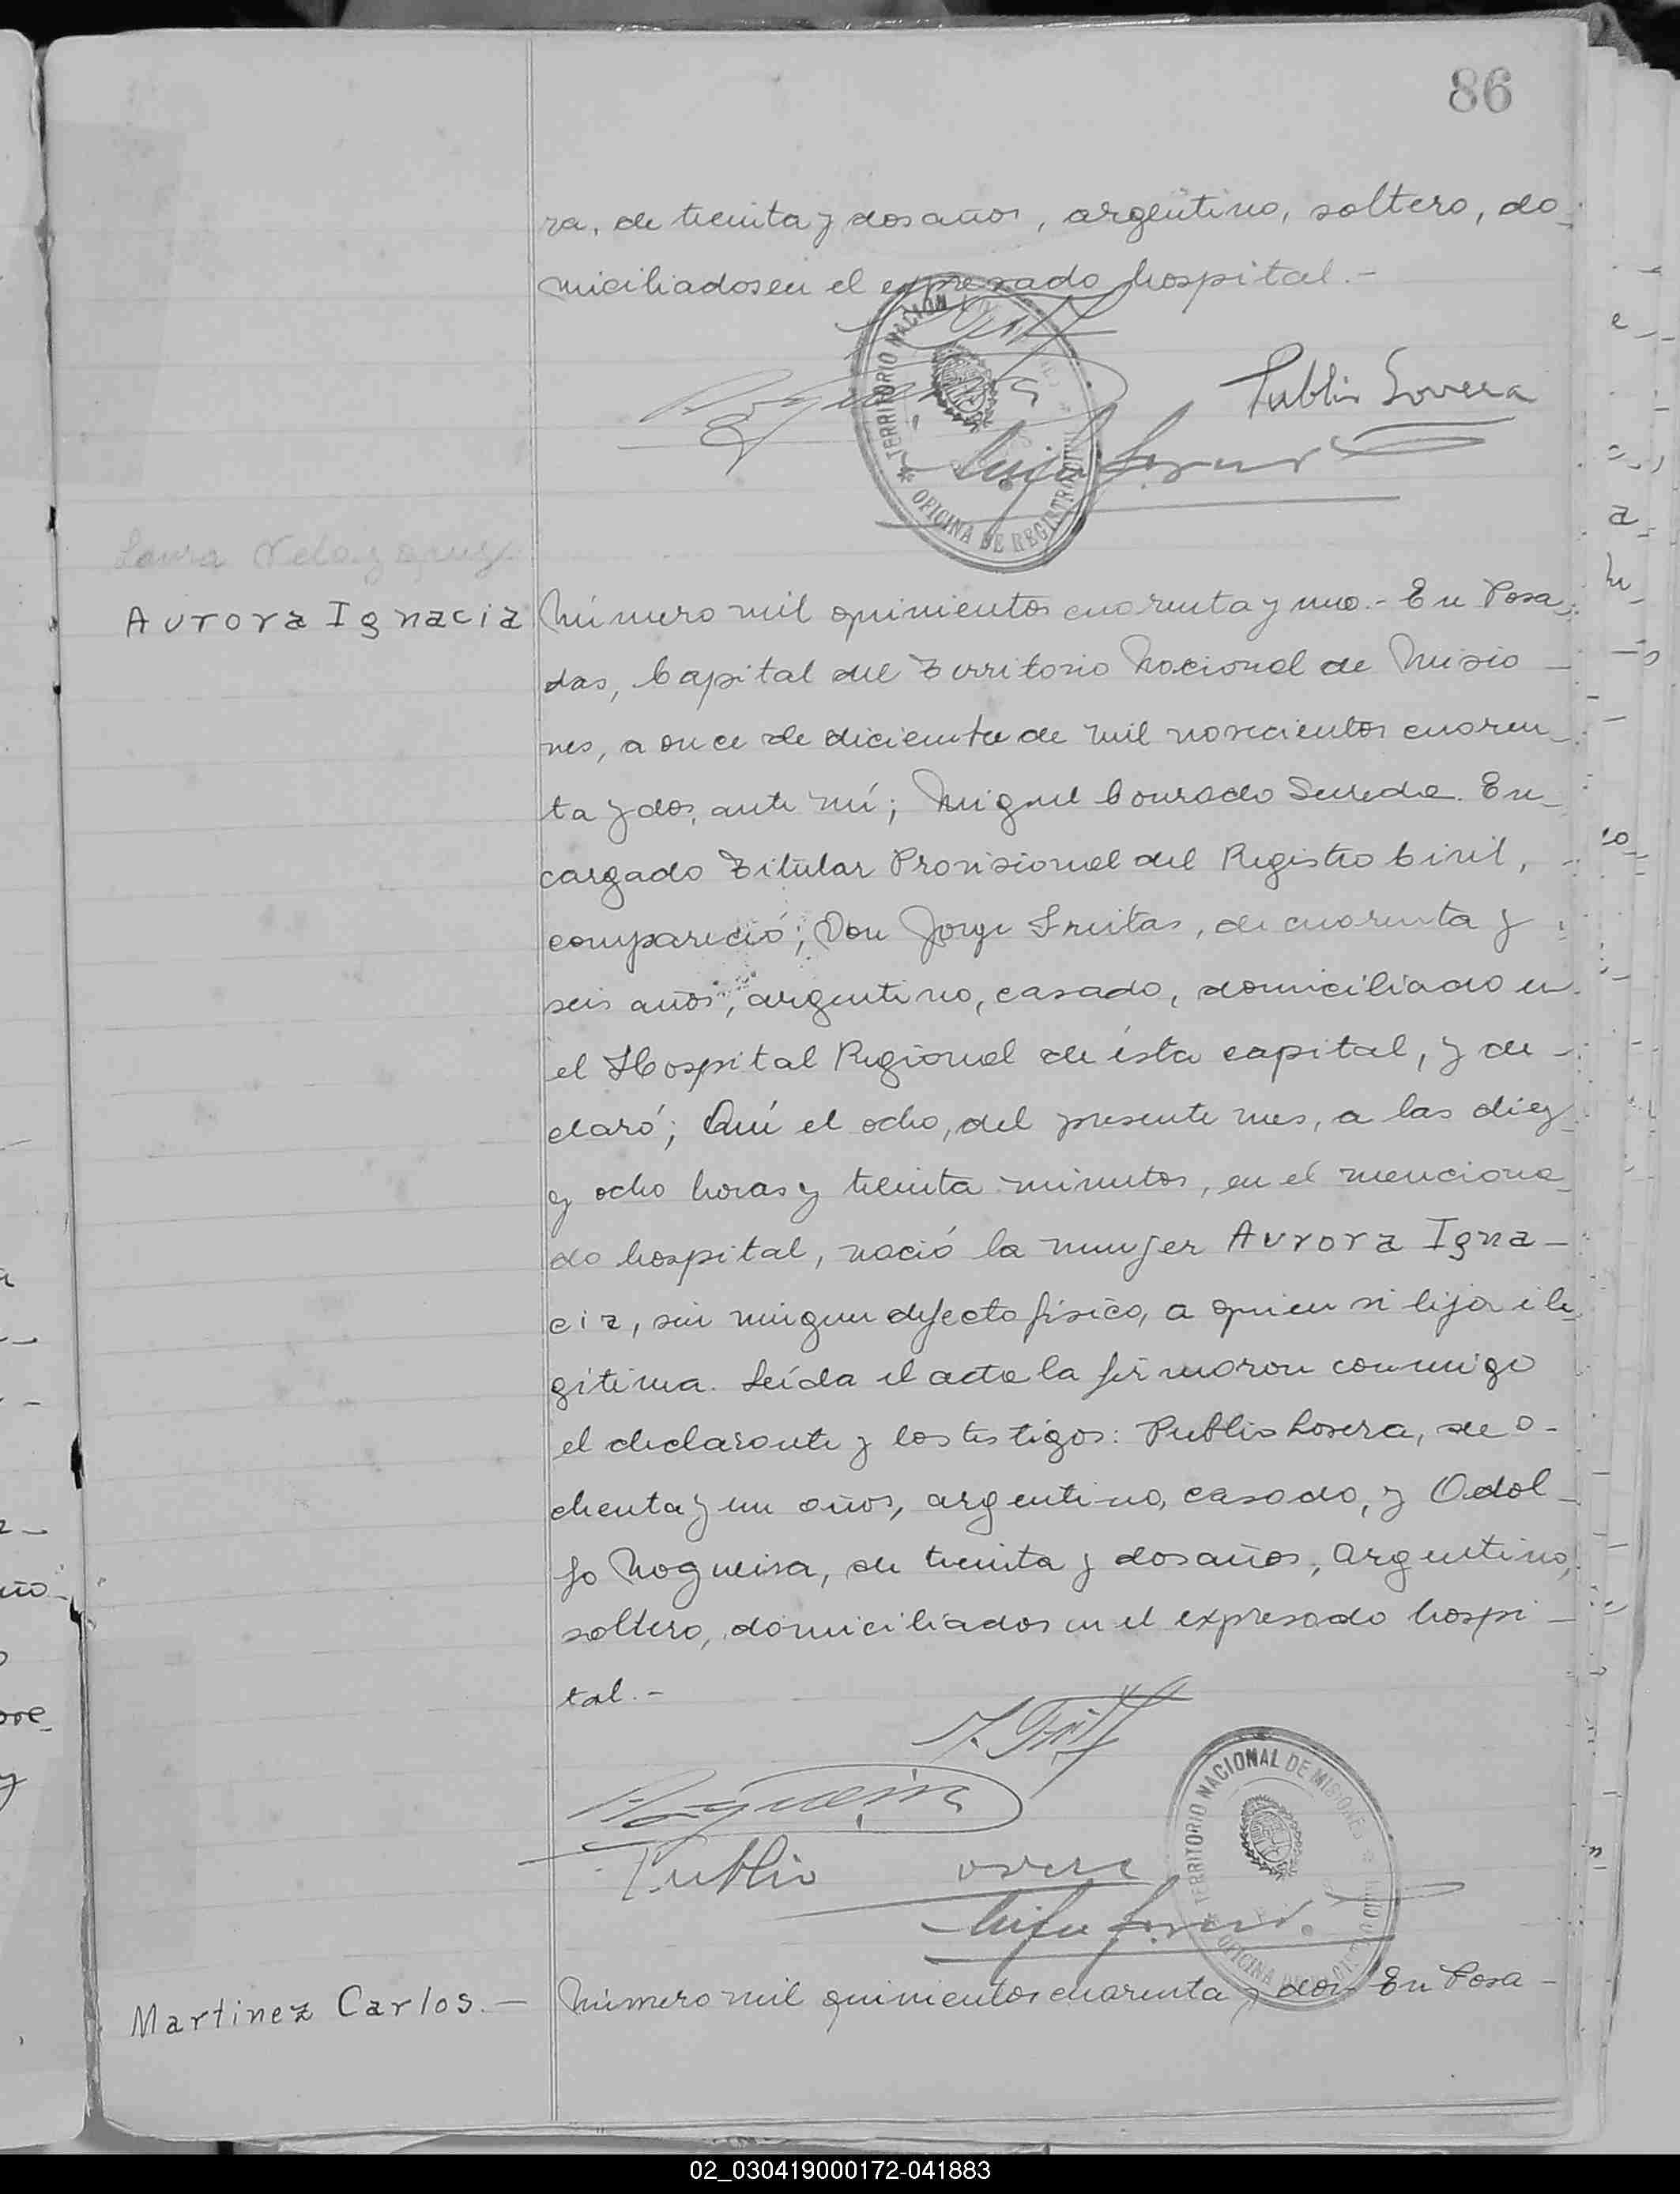 86
ra, de treinta y dos años, argentino, soltero, do_
miciliados en el expresado hospital.-
TERRITORIO NACION
OFICINA DE REGISTRO
Publio Lovera
Laura Velazquez
Aurora Ignacia
Número mil quinientos cuarenta y uno.- En Posa_
das, Capital del Territorio Nacional de Misio_
nes, a once de diciembre de mil novecientos cuaren_
ta y dos, ante mí; Miguel Conrado Sereda. En_
cargado Titular Provisional del Registro Civil,
compareció; Don Jorge Freitas, de cuarenta y
seis años, argentino, casado, domiciliado en
el Hospital Regional de ésta capital, y de_
claró; Qué el ocho, del presente mes, a las diez_
y ocho horas y treinta minutos, en el menciona_
do hospital, nació la mujer Aurora Igna_
cia, sin ningun defecto físico, a quien hija ile_
gítima. Leída el acta la firmaron conmigo
el declarante y los testigos: Publio Lovera, de o-
chenta y un años, argentino, casado, y Odol_
fo Nogueira, de treinta y dos años, argentino,
soltero, domiciliados en el expresado hospi_
tal.-
Nogueira
Publio overa
TERRITORIO NACIONAL DE MISIONES
OFICINA
Martinez Carlos.-
Número mil quinientos cuarenta y dos.- En Posa_
02_030419000172-041883